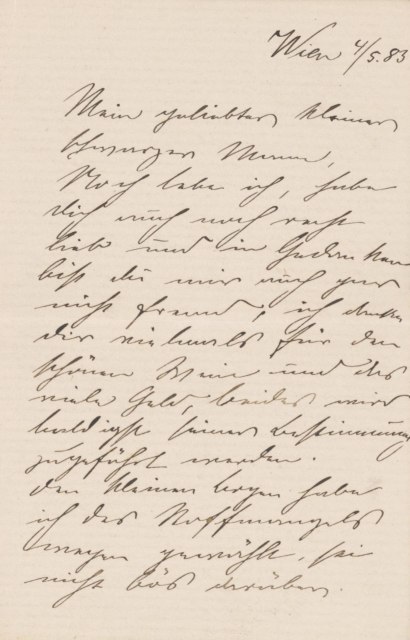 Wien 4/5.83
Mein geliebter kleiner
schwarzer Mann,
Noch lebe ich, habe
dich auch noch recht
lieb und in Gedanken
bist du mir auch gar
nicht fremd, ich danke
dir vielmals für den
schönen Wein und das
viele Geld, beides wird
baldigst seiner Bestimmung
zugeführt werden.
den kleinen bogen habe
ich des Stoffmangels
wegen gewählt, sei
nicht bös darüber.